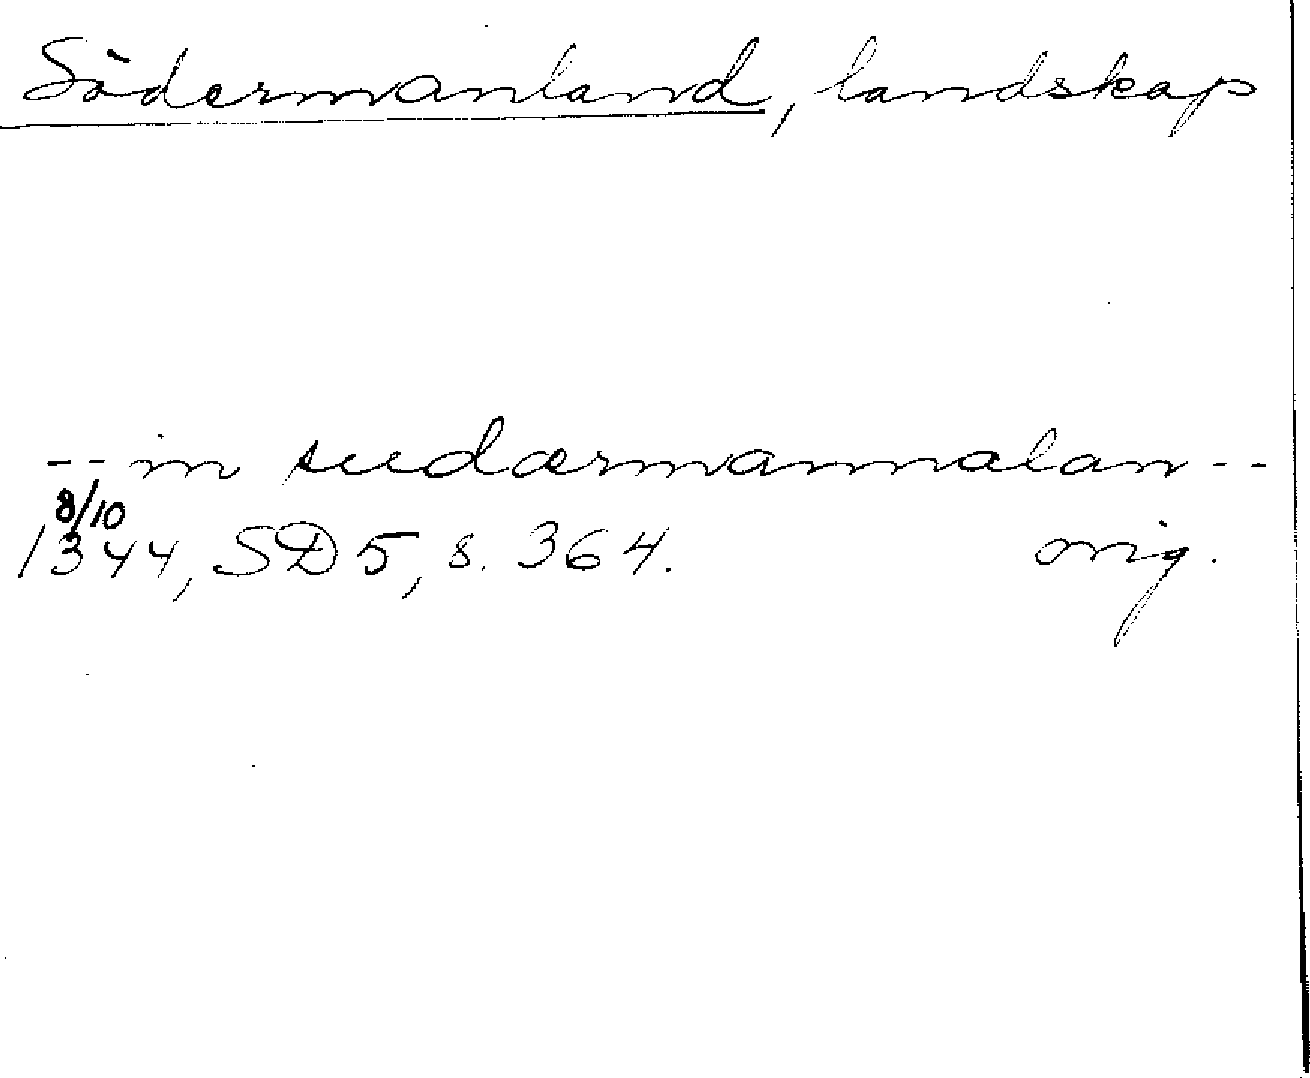 Södermanland, landskap
-- in sudærmannalan --
8/10
1344, SD 5, s. 364. orig.